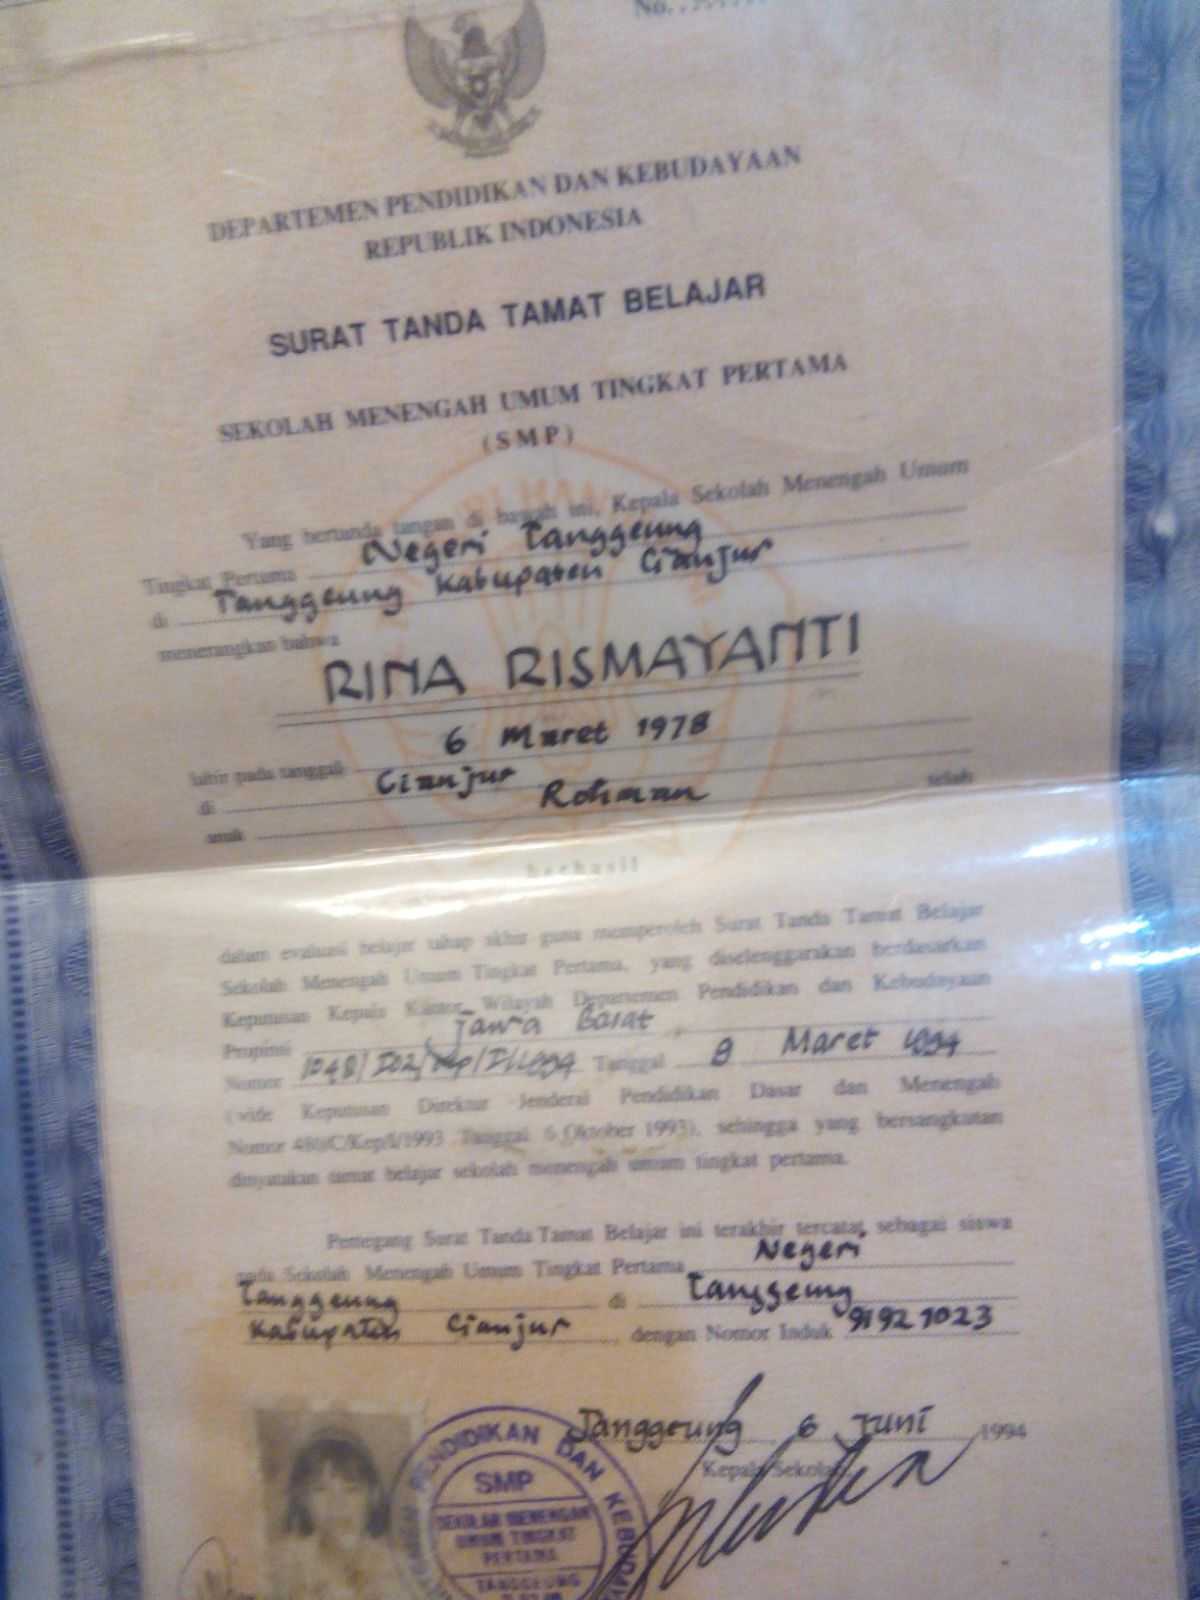 No.
DEPARTEMEN PENDIDIKAN DAN KEBUDAYAAN
REPUBLIK INDONESIA
SURAT TANDA TAMAT BELAJAR
SEKOLAH MENENGAH UMUM TINGKAT PERTAMA
(SMP)
Yang bertanda tangan di bawah ini, Kepala Sekolah Menengah Umum
Tingkat Pertama Negeri Tanggeung
di Tanggeung Kabupaten Cianjur
menerangkan bahwa
RINA RISMAYANTI
lahir pada tanggal 6 Maret 1978
di Cianjur
anak Rohman telah
berhasil
dalam evaluasi belajar tahap akhir guna memperoleh Surat Tanda Tamat Belajar
Sekolah Menengah Umum Tingkat Pertama, yang diselenggarakan berdasarkan
Keputusan Kepala Kantor Wilayah Departemen Pendidikan dan Kebudayaan
Propinsi Jawa Barat
Nomor Tanggal 8 Maret 1994
(vide Keputusan Direktur Jenderal Pendidikan Dasar dan Menengah
Nomor 480/C/Kep/I/1993 Tanggal 6 Oktober 1993), sehingga yang bersangkutan
dinyatakan tamat belajar sekolah menengah umum tingkat pertama.
Pemegang Surat Tanda Tamat Belajar ini terakhir tercatat sebagai siswa
pada Sekolah Menengah Umum Tingkat Pertama Negeri
Tanggeung di Tanggeung
Kabupaten Cianjur dengan Nomor Induk 91921023
Tanggeung, 6 Juni 1994
Kepala Sekolah,
PENDIDIKAN DAN
SMP
SEKOLAH MENENGAH
UMUM TINGKAT
PERTAMA
TANGGEUNG